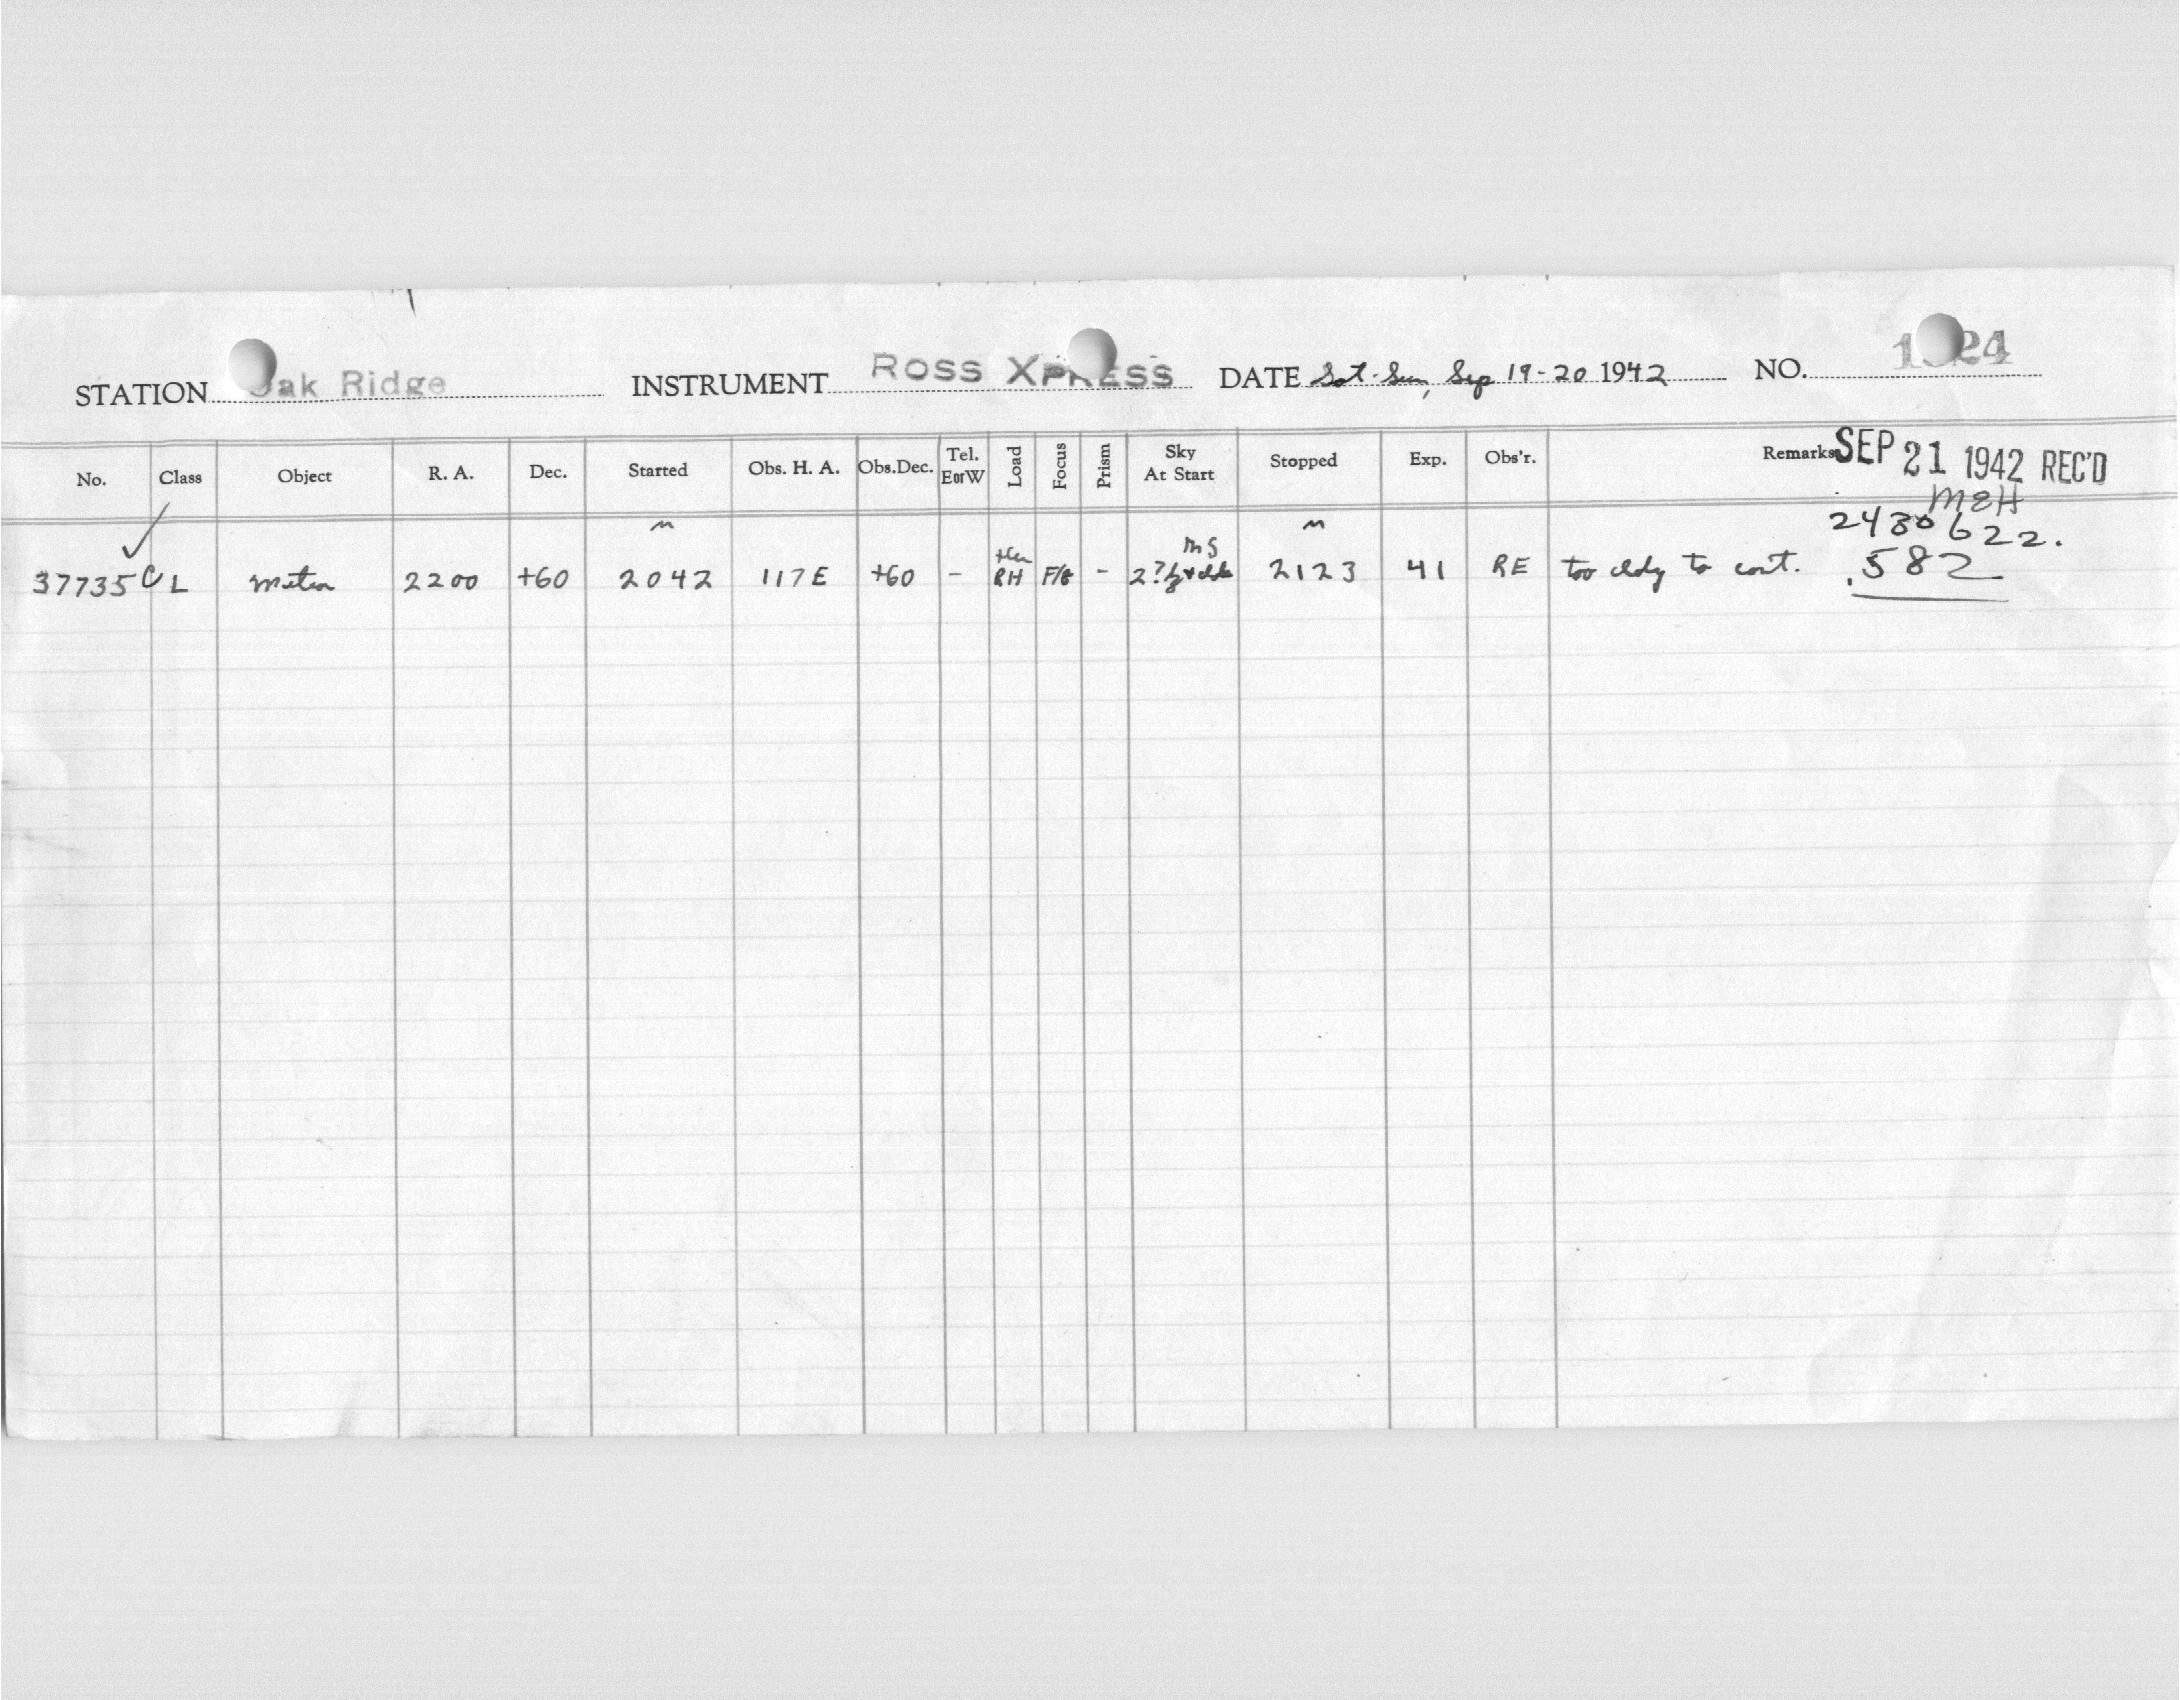 STATION Oak Ridge INSTRUMENT ROSS XPRESS DATE Sat-Sun, Sep 19-20 1942 NO. 24
No. Class Object R. A. Dec. Started Obs. H. A. Obs.Dec. Tel. EorW Load Focus Prism Sky At Start Stopped Exp. Obs'r. Remarks
SEP 21 1942 REC'D
MEH
m m 2430622.
37735 CL Meteor 2200 +60 2042 117E +60 - RH F/8 - 2? 2123 41 RE too cldy to cont. .582